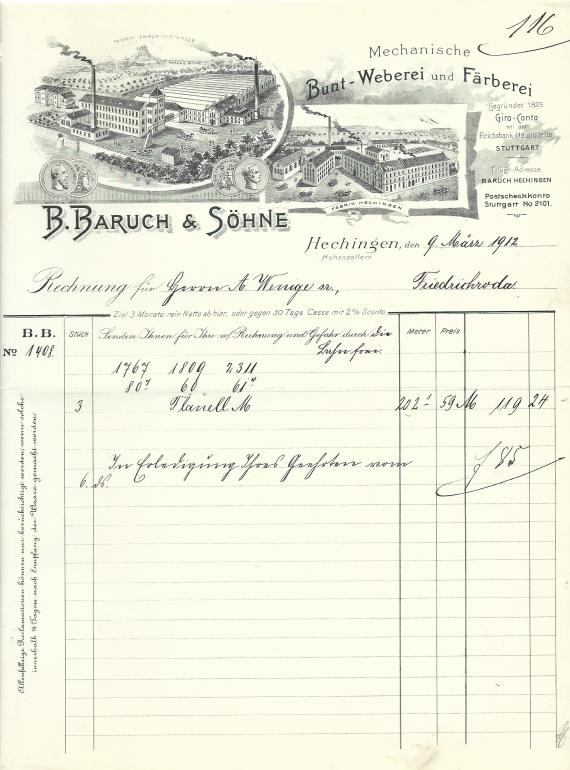 116
FABRIK FRIEDRICHSTRASSE
Mechanische
Bunt-Weberei und Färberei
Gegründet 1825
Giro-Conto
bei der
Reichsbank-Hauptstelle
STUTTGART
Telegr.-Adresse
BARUCH HECHINGEN
Postscheckkonto
Stuttgart No 2101.
FABRIK HECHINGEN
B. BARUCH & SÖHNE
Hechingen, den 9 März 1912
Hohenzollern
Rechnung für Herrn A. Wenige sr., Friedrichroda.
Ziel 3 Monate rein Netto ab hier, oder gegen 30 Tage Cassa mit 2% Sconto.
B.B.
No 1408.
Stück
Senden Ihnen für Ihre w/ Rechnung und Gefahr durch die
Bahn frco.
Meter
Preis
1767 1809 2311
80¹ 60 61⁴
3 Flanell M 202¹ 59 M 119 24
In Erledigung Ihres Geehrten vom
6. ds.
f 85
Allenfallsige Reclamationen können nur berücksichtigt werden, wenn solche
innerhalb 8 Tagen nach Empfang der Waare gemacht werden